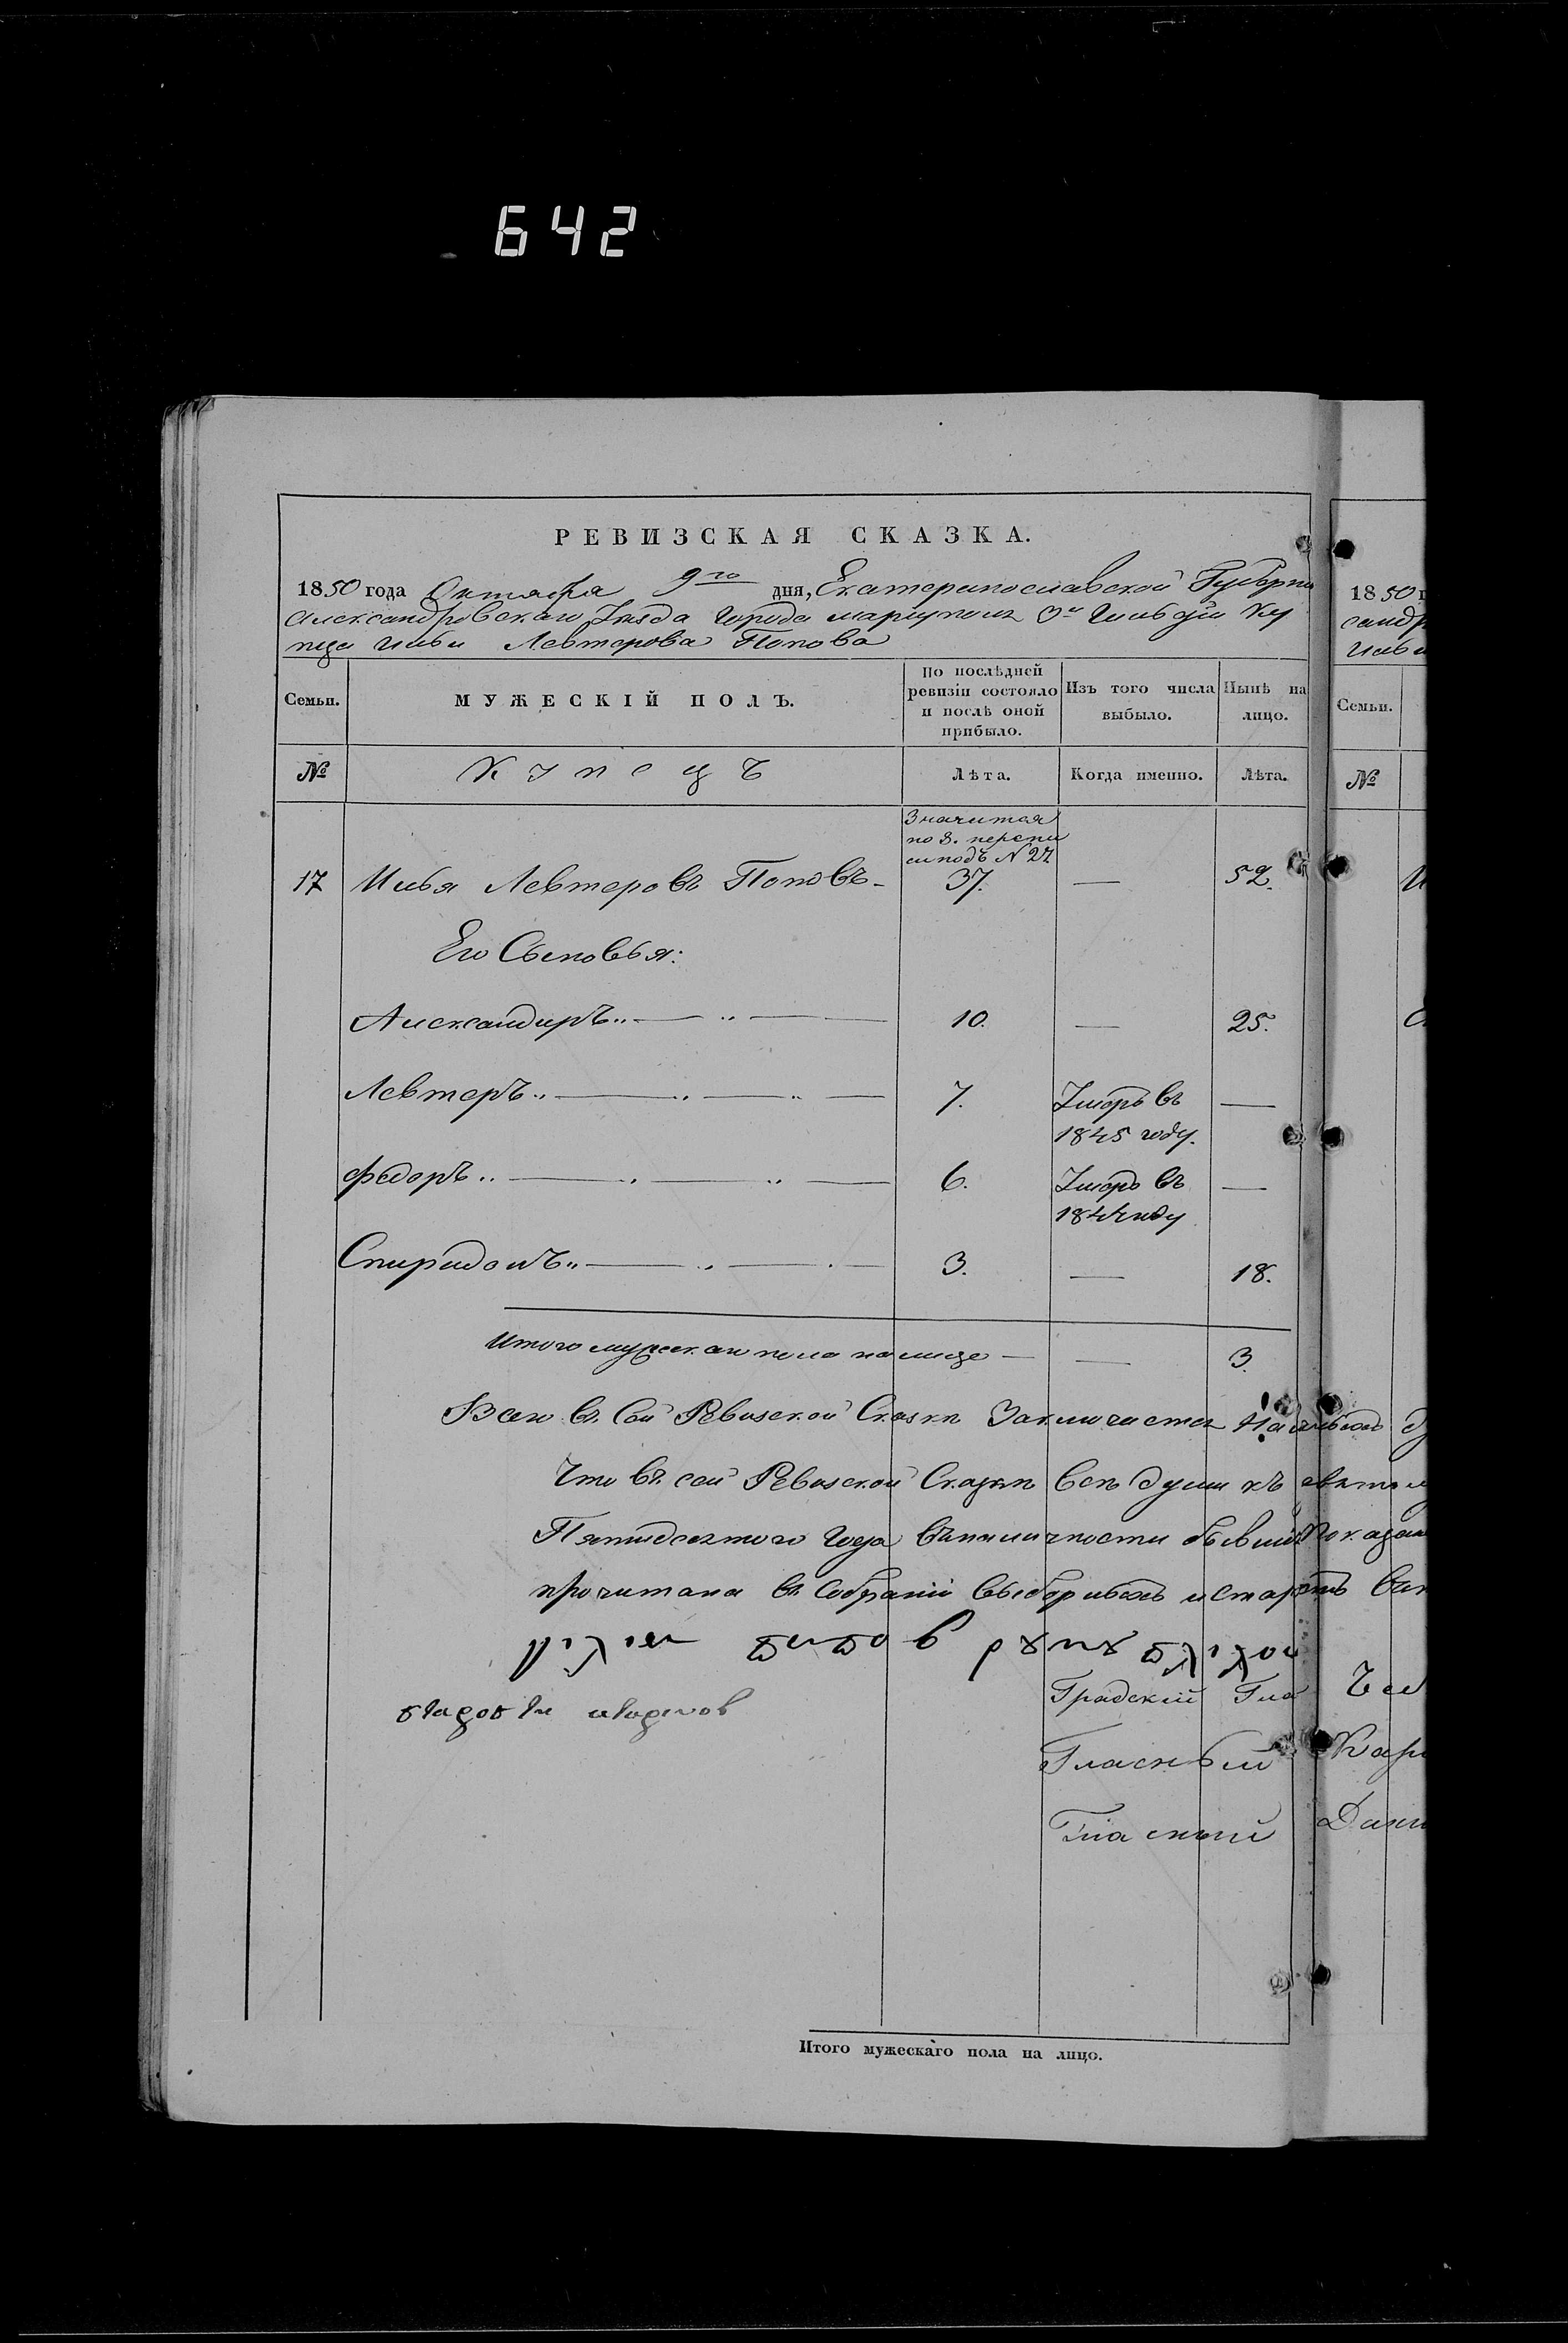 642
РЕВИЗСКАЯ СКАЗКА.
1850 года Октября 9го дня, Екатеринославской Губерніи
Александровскаго Уезда города мариуполя 3й Гильдіи Ку
пца Ильи Левтерова Попова
Семьи.
МУЖЕСКІЙ ПОЛЪ.
По послѣдней ревизіи состояло и послѣ оной прибыло.
Изъ того числа выбыло.
Нынѣ на лицо.
№
Купецъ
Лѣта.
Когда именно.
Лѣта.
Значится
по 8. перепи
си подъ N 27
17 Илья Левтеровъ Поповъ 37. — 52.
Его Сыновья:
Александиръ 10. — 25.
Левтеръ 7. Умеръ въ —
1845 году.
Федоръ 6. Умеръ въ —
1844 году
Спиридонъ 3. — 18.
Итого мужескаго пола налицо — — 3.
Всего въ Сей Ревизской Сказкѣ Заключается Наличныхъ
Что въ сей Ревизской Сказкѣ всѣ души къ
Пятидесятого Года въ наличности бывшіе
прочитана въ Собраніи выборныхъ и
Градскій Гла
Гласный
Гласный
Итого мужескаго пола на лицо.
1850
Семьи.
№